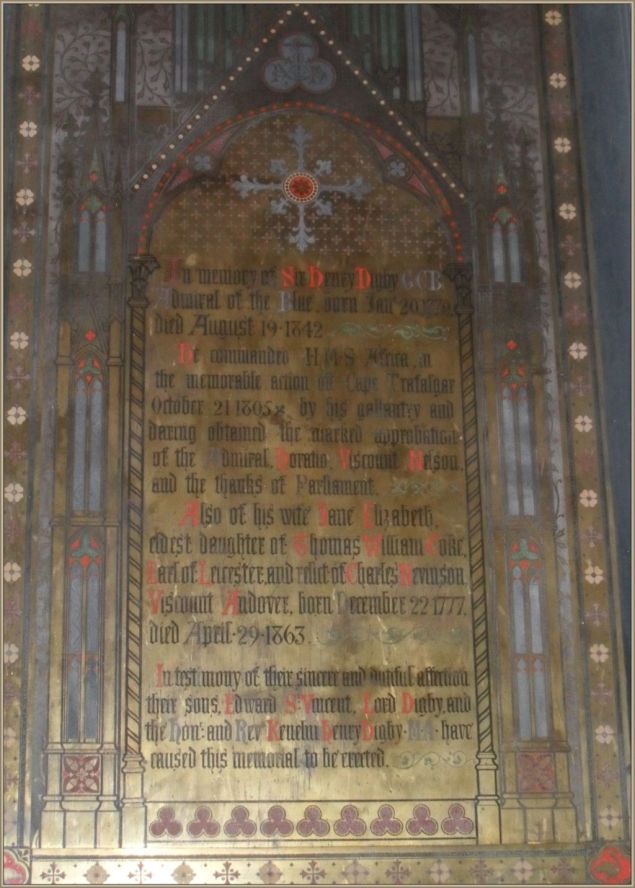 In memory of Sir Henry Digby GCB
Admiral of the Blue, born Jany 20 1770,
died August 19 · 1842
He commanded H·M·S· Africa, in
the memorable action off Cape Trafalgar
October 21 1805, by his gallantry and
daring obtained the marked approbation
of the Admiral, Horatio, Viscount Nelson,
and the thanks of Parliament.
Also of his wife Jane Elizabeth,
eldest daughter of Thomas William Coke,
Earl of Leicester, and relict of Charles Nevinson
Viscount Andover, born December 22 1777,
died April · 29 · 1863.
In testimony of their sincere and dutiful affection
their sons, Edward St Vincent, Lord Digby, and
the Honble and Revd Kenelm Henry Digby · M·A · have
caused this memorial to be erected.